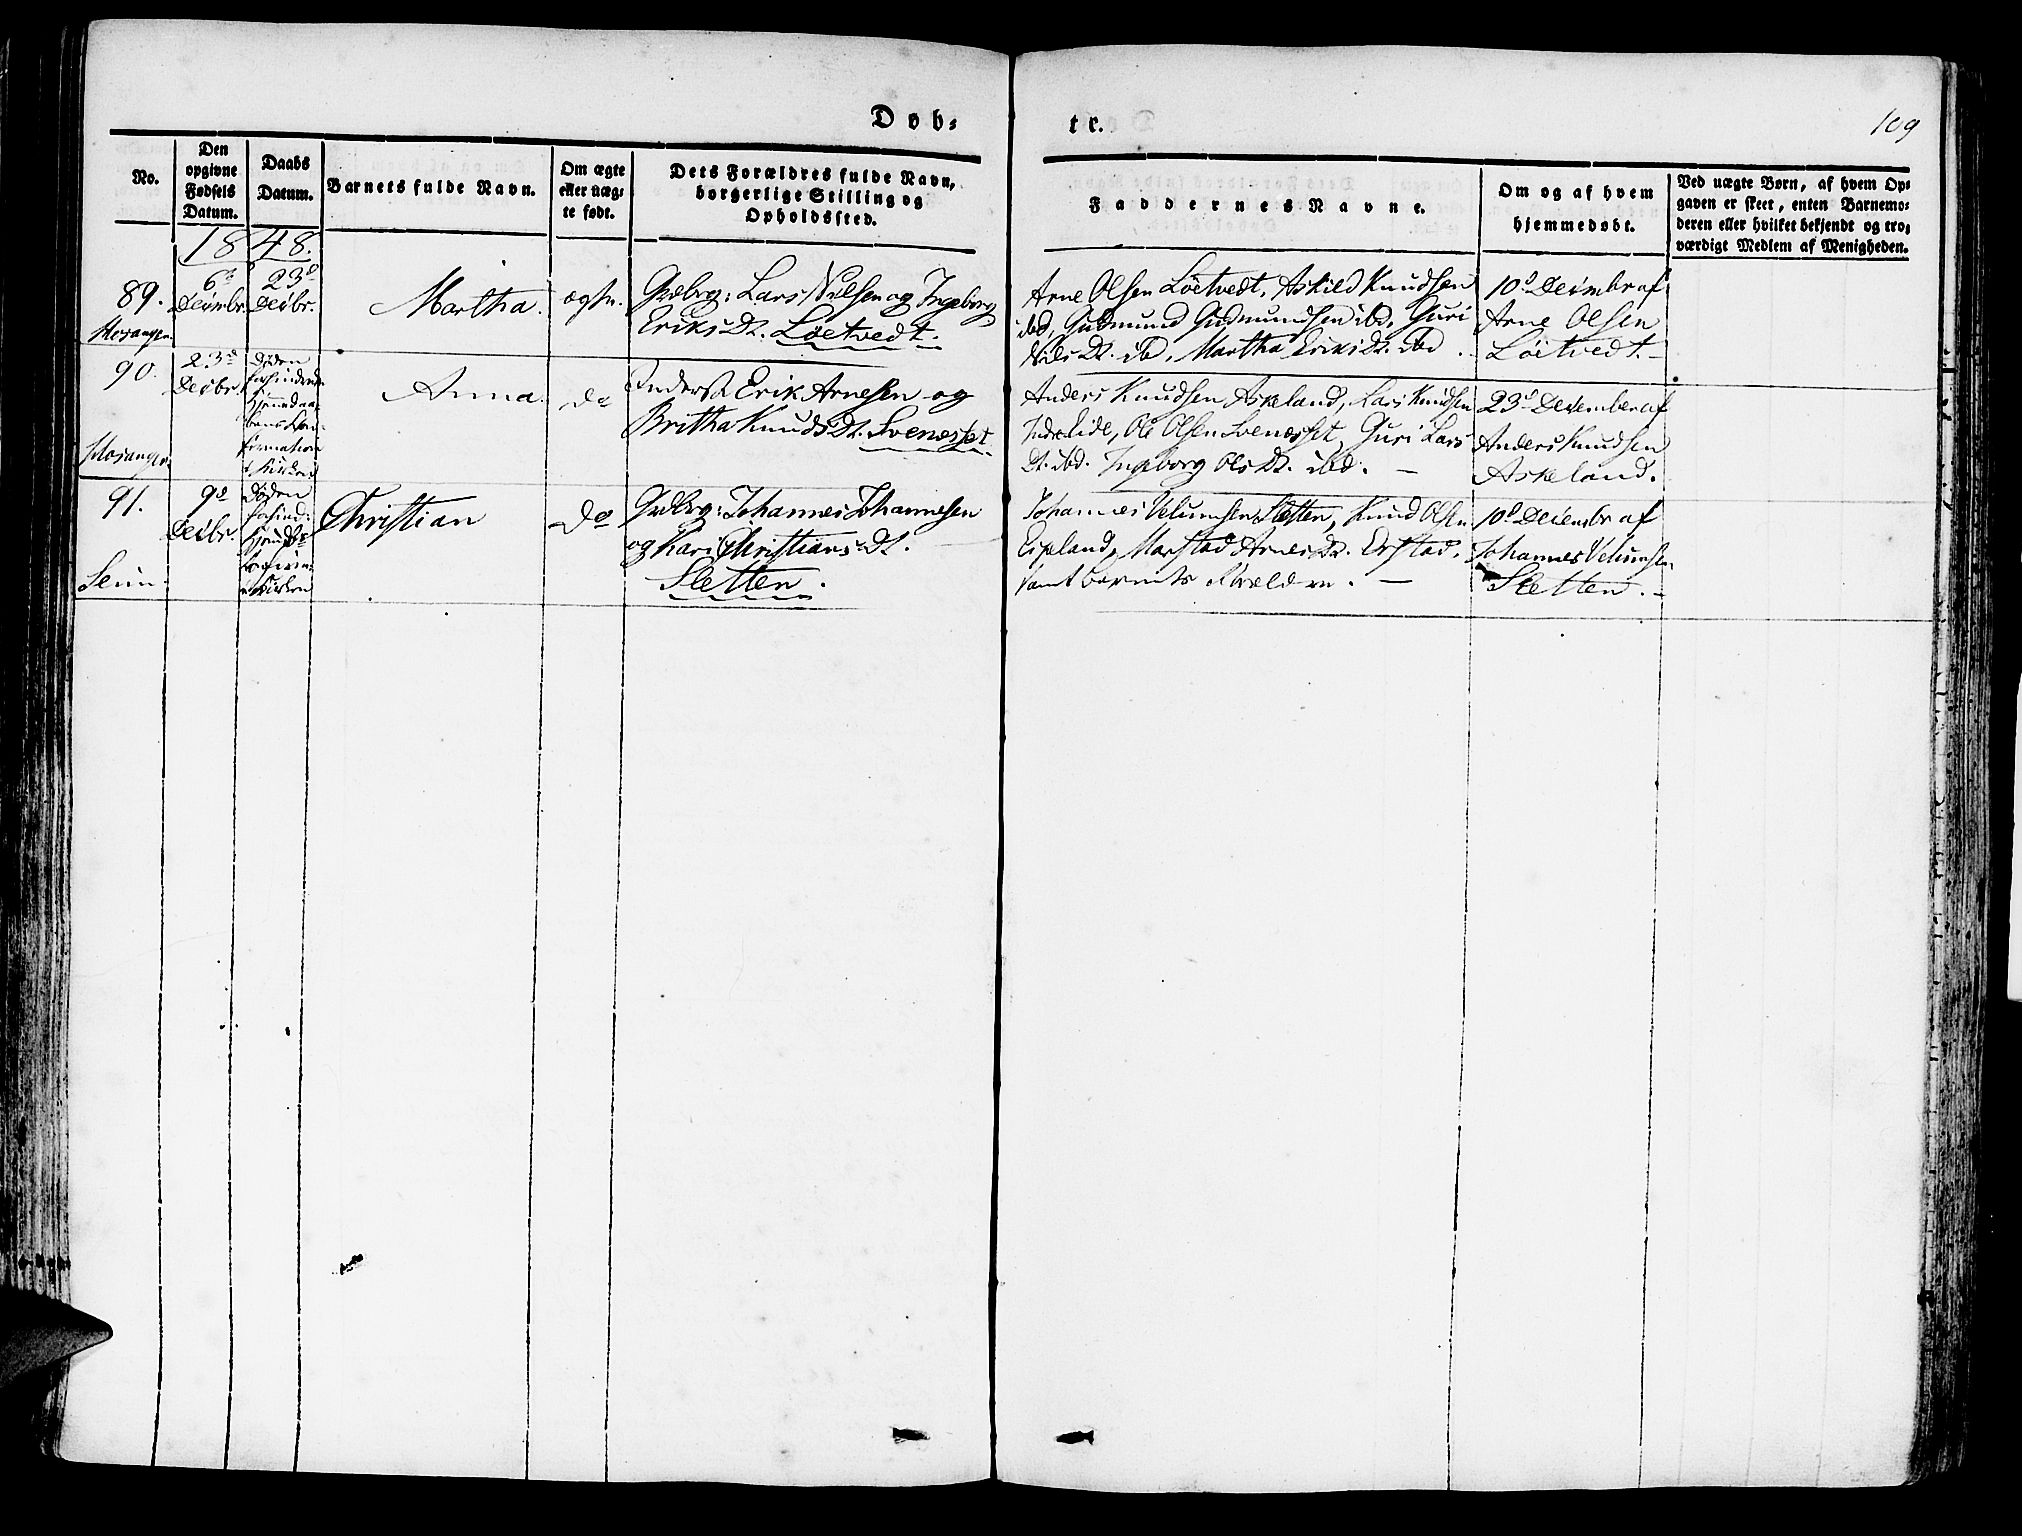 Døb=
te.
109
No.
Den
opgivne
Fødsels
Datum.
Daabs
Datum.
Barnets fulde Navn.
Om ægte
eller uæg-
te født.
Dets Forældres fulde Navn,
borgerlige Stilling og
Opholdssted.
Faddernes Navne.
Om og af hvem
hjemmedøbt.
Ved uægte Børn, af hvem Op-
gaven er skeet, enten Barnemo-
deren eller hvilket bekjendt og tro-
værdigt Medlem af Menigheden.
1848.
89.
Mosanger
6te
Decmbr.
23d
Decbr.
Martha.
Grdbrg: Lars Nilsen og Ingeborg
Eriks Dt. Løetvedt.
Arne Olsen Löetvedt, Askild Knudsen
ibd, Gudmund Gudmundsen ibd, Guri
Nils Dt. ibd, Martha Eriks Dt. ibd.
10d Decimbr af
Arne Olsen
Löitvedt.
90.
Mosanger
23d
Decbr.
Døden
forhindrede
hjemmedaa-
bens Con-
firmation
i Kirken
Anna.
do
Inderst Erik Arnesen og
Britha Knuds Dt. Svenesset.
Anders Knudsen Askeland, Lars Knudsen
Indreeide, Ole Olsen Svenesset, Guri Lars
Dt. ibd. Ingeborg Ols Dt. ibd.
23d December af
Anders Knudsen
Askeland.
91.
Seim
9d
Decbr.
Døden
forhind:
i Kirken
Christian
Do
Grdbrg: Johannes Johannesen
og Kari Christians Dt.
Sletten.
Johannes Velumsen Sletten, Knud Olsen
Eipland, Marstad Arnes Dt. Erstad,
samt barnets Forældre.
10d Decembr af
Johannes Velumsen
Sletten.